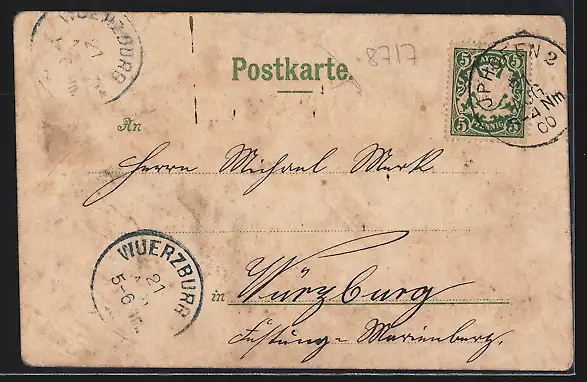 WUERZBURG
21
8717
Postkarte.
BAYERN
5 5
5 5
PFENNIG
2
Nm
00
An
Herrn Michael Merk
WUERZBURG
21
5-6
in Würzburg
Festung-Marienberg.